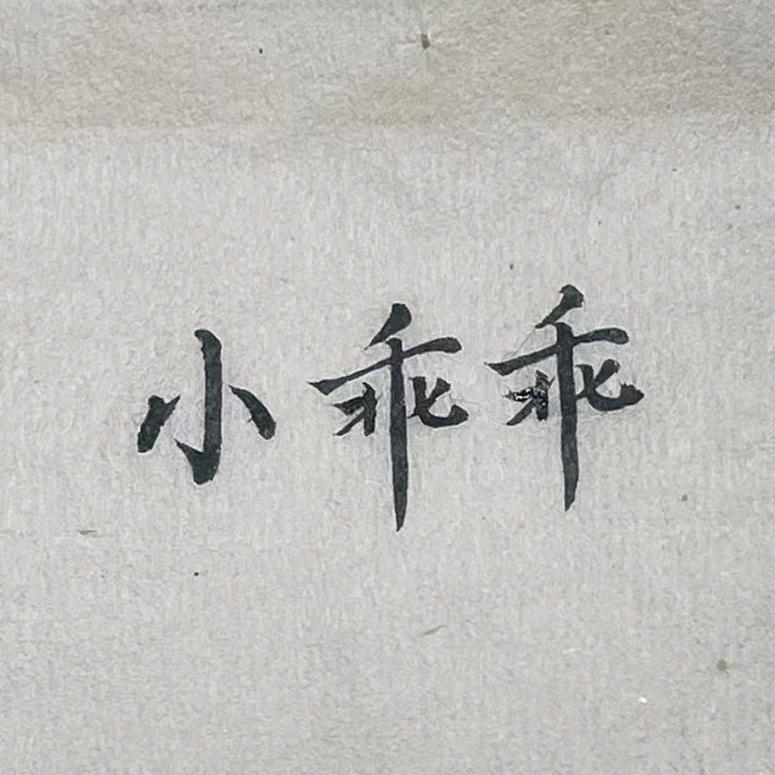 小乖乖